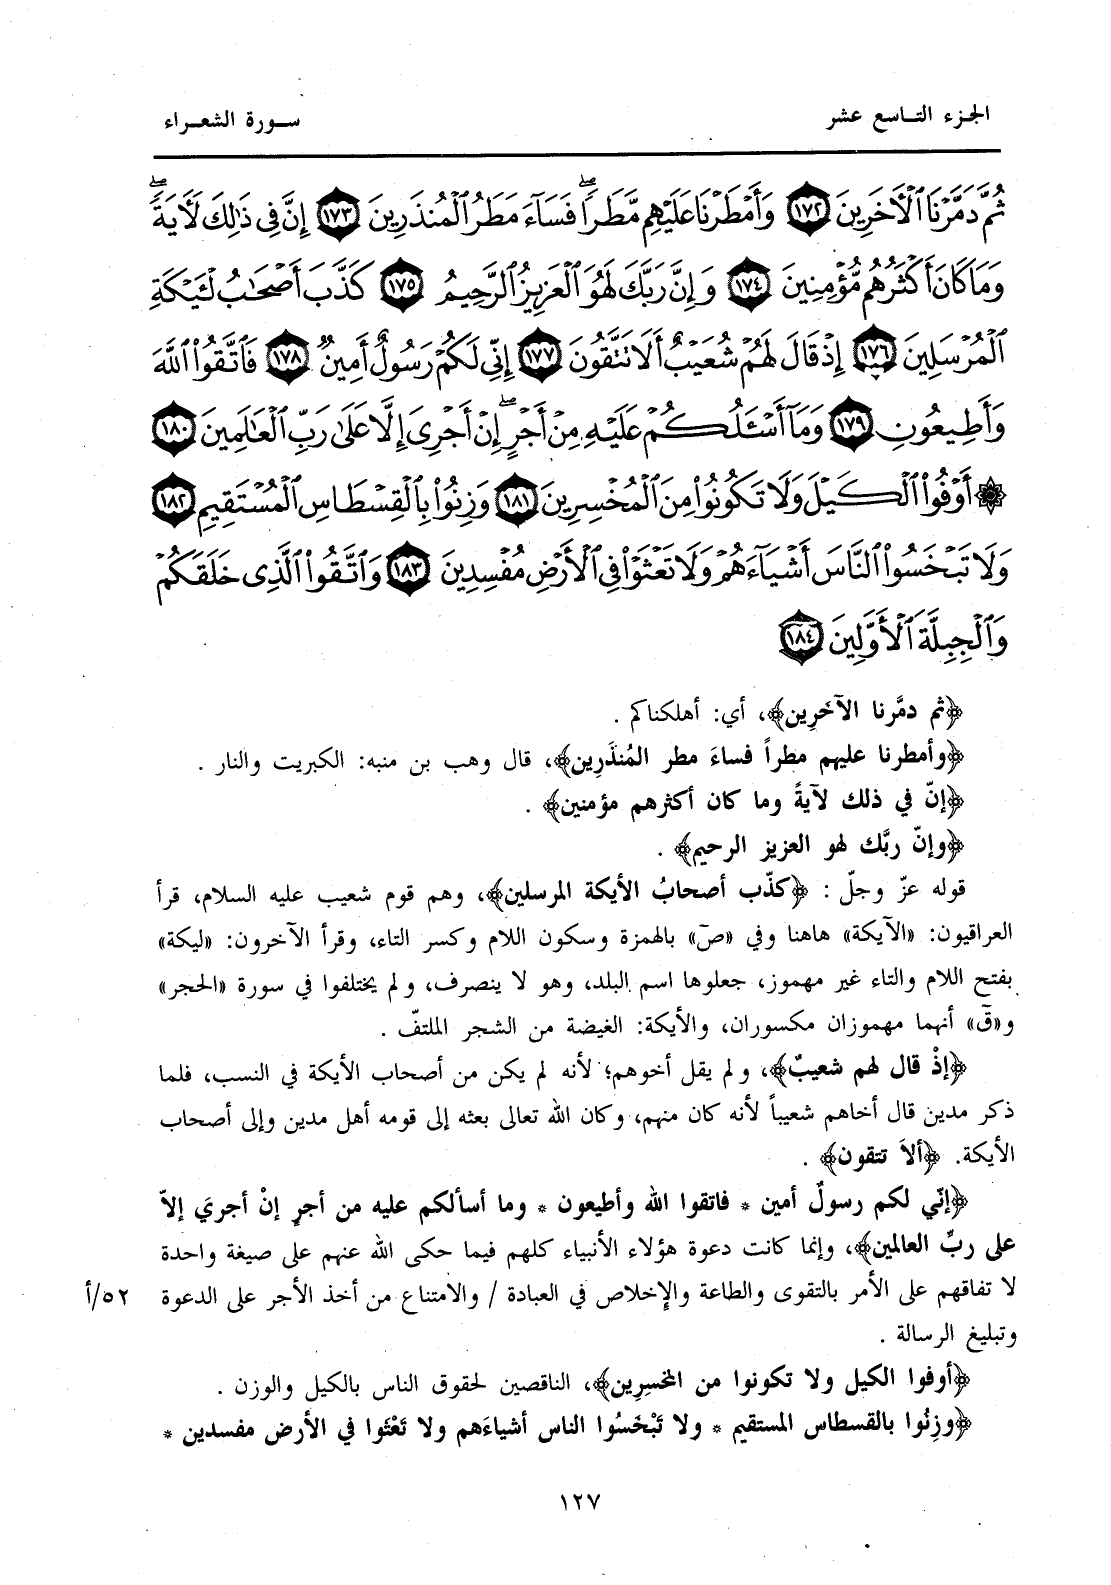 الجزء التاسع عشر
سورة الشعراء
ثُمَّ دَمَّرْنَا ٱلْأَخَرِينَ ١٧٢ وَأَمْطَرْنَا عَلَيْهِم مَّطَرًا ۖ فَسَآءَ مَطَرُ ٱلْمُنذَرِينَ ١٧٣ إِنَّ فِى ذَٰلِكَ لَأَيَةً ۖ
وَمَا كَانَ أَكْثَرُهُم مُّؤْمِنِينَ ١٧٤ وَإِنَّ رَبَّكَ لَهُوَ ٱلْعَزِيزُ ٱلرَّحِيمُ ١٧٥ كَذَّبَ أَصْحَٰبُ لْـَٔيْكَةِ
ٱلْمُرْسَلِينَ ١٧٦ إِذْ قَالَ لَهُمْ شُعَيْبٌ أَلَا تَتَّقُونَ ١٧٧ إِنِّى لَكُمْ رَسُولٌ أَمِينٌ ١٧٨ فَٱتَّقُوا۟ ٱللَّهَ
وَأَطِيعُونِ ١٧٩ وَمَآ أَسْـَٔلُكُمْ عَلَيْهِ مِنْ أَجْرٍ ۖ إِنْ أَجْرِىَ إِلَّا عَلَىٰ رَبِّ ٱلْعَٰلَمِينَ ١٨٠
۞ أَوْفُوا۟ ٱلْكَيْلَ وَلَا تَكُونُوا۟ مِنَ ٱلْمُخْسِرِينَ ١٨١ وَزِنُوا۟ بِٱلْقِسْطَاسِ ٱلْمُسْتَقِيمِ ١٨٢
وَلَا تَبْخَسُوا۟ ٱلنَّاسَ أَشْيَآءَهُمْ وَلَا تَعْثَوْا۟ فِى ٱلْأَرْضِ مُفْسِدِينَ ١٨٣ وَٱتَّقُوا۟ ٱلَّذِى خَلَقَكُمْ
وَٱلْجِبِلَّةَ ٱلْأَوَّلِينَ ١٨٤
﴿ثم دمَّرنا الآخَرِين﴾، أي: أهلكناكم .
﴿وأمطرنا عليهم مطراً فساءَ مطر المُنذَرِين﴾، قال وهب بن منبه: الكبريت والنار .
﴿إنّ في ذلك لآيةً وما كان أكثرهم مؤمنين﴾ .
﴿وإنّ ربَّك لهو العزيز الرحيم﴾ .
قوله عزّ وجلّ : ﴿كذّب أصحابُ الأيكة المرسلين﴾، وهم قوم شعيب عليه السلام، قرأ
العراقيون: «الأيكة» هاهنا وفي «صۤ» بالهمزة وسكون اللام وكسر التاء، وقرأ الآخرون: «ليكة»
بفتح اللام والتاء غير مهموز، جعلوها اسم البلد، وهو لا ينصرف، ولم يختلفوا في سورة «الحجر»
و«قۤ» أنهما مهموزان مكسوران، والأيكة: الغيضة من الشجر الملتفّ .
﴿إذْ قال لهم شعيبٌ﴾، ولم يقل أخوهم؛ لأنه لم يكن من أصحاب الأيكة في النسب، فلما
ذكر مدين قال أخاهم شعيباً لأنه كان منهم، وكان الله تعالى بعثه إلى قومه أهل مدين وإلى أصحاب
الأيكة. ﴿ألاَ تتقون﴾ .
﴿إنّي لكم رسولٌ أمين * فاتقوا الله وأطيعون * وما أسألكم عليه من أجرٍ إنْ أجريَ إلاّ
على ربِّ العالمين﴾، وإنما كانت دعوة هؤلاء الأنبياء كلهم فيما حكى الله عنهم على صيغة واحدة
لا تفاقهم على الأمر بالتقوى والطاعة والإخلاص في العبادة / والامتناع من أخذ الأجر على الدعوة ٥٢/أ
وتبليغ الرسالة .
﴿أوفوا الكيل ولا تكونوا من المخسِرين﴾، الناقصين لحقوق الناس بالكيل والوزن .
﴿وزِنُوا بالقسطاس المستقيم * ولا تَبْخَسُوا الناس أشياءَهم ولا تَعْثَوا في الأرض مفسدين *
١٢٧